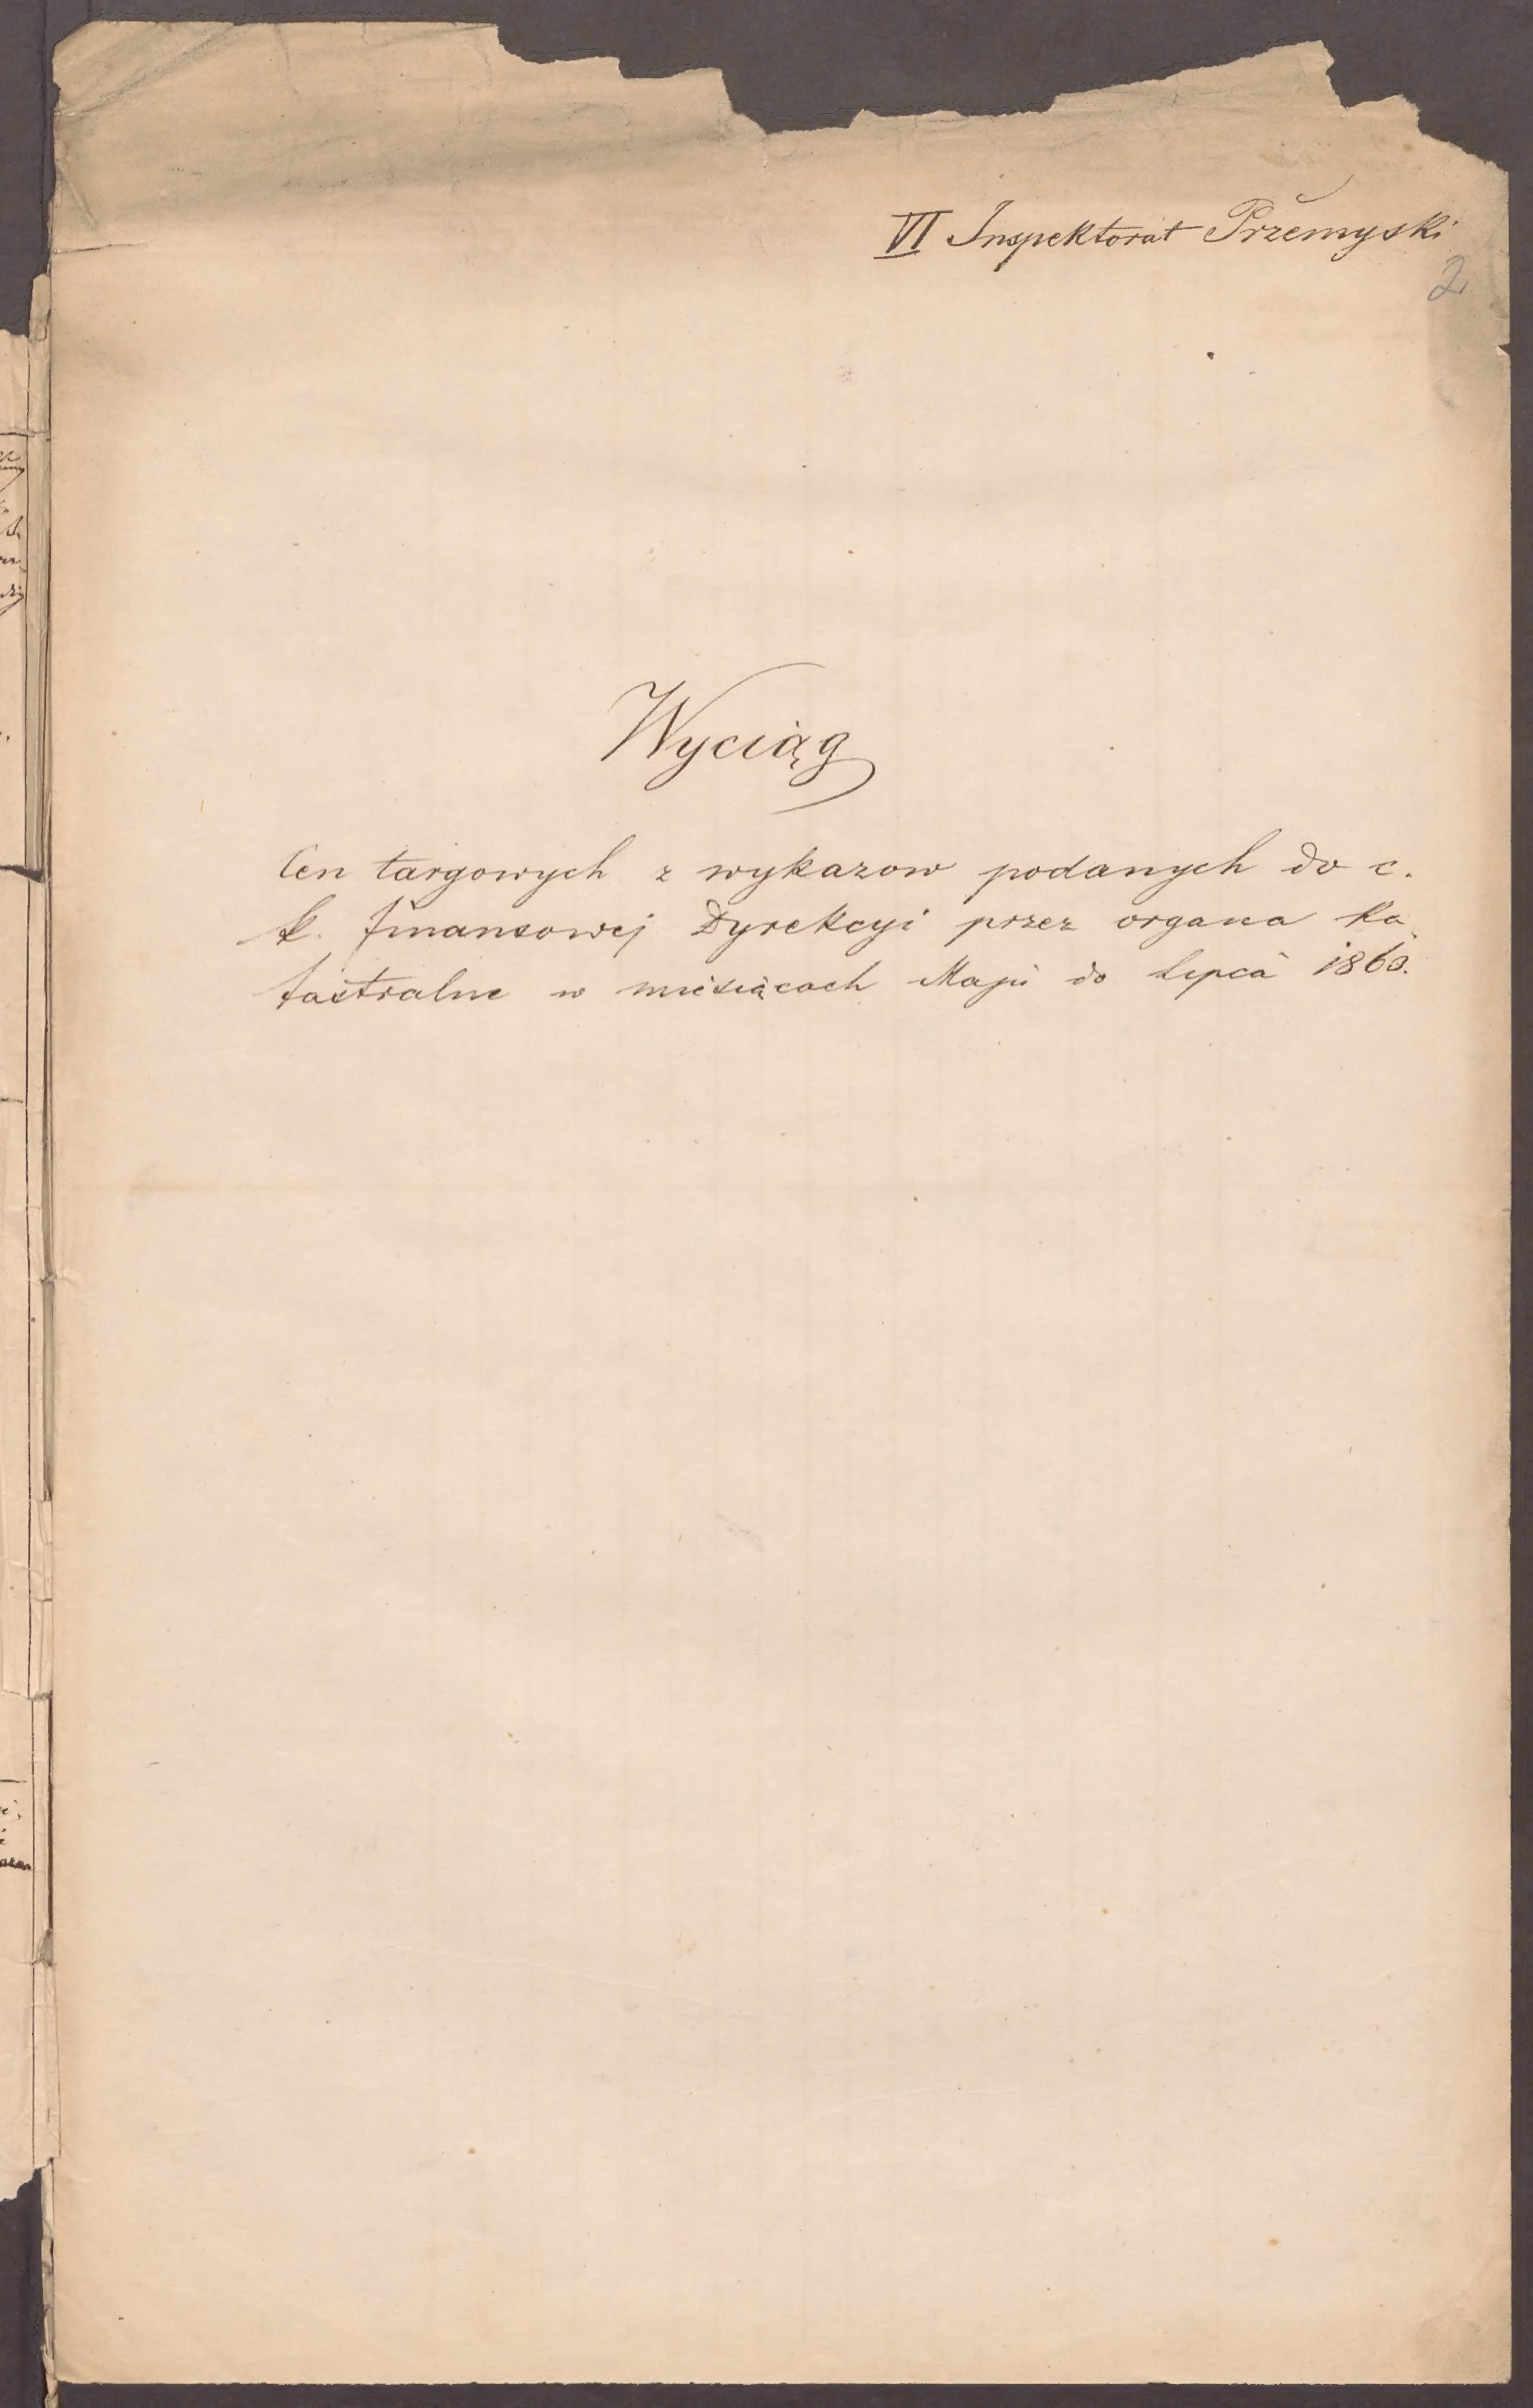 VI Inspektorat Przemyski
2
Wyciąg
Cen targowych z wykazow podanych do c.
k. finansowej Dyrekcyi przez organa ka
tastralne w miesiącach Maju do Lipca 1860.